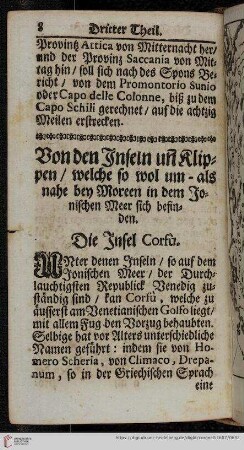 8 Dritter Theil.
Provintz Attica von Mitternacht her/
und der Provintz Saccania von Mit-
tag hin/ soll sich nach des Spons Be-
richt / von dem Promontorio Sunio
oder Capo delle Colonne, biß zu dem
Capo Schili gerechnet/ auf die achtzig
Meilen erstrecken.
Von den Inseln uñ Klip-
pen/ welche so wol um- als
nahe bey Moreen in dem Jo-
nischen Meer sich befin-
den.
Die Insel Corfù.
UNter denen Inseln/ so auf dem
Jonischen Meer/ der Durch-
lauchtigsten Republick Venedig zu-
ständig sind / kan Corfù, welche zu
äusserst am Venetianischen Golfo liegt/
mit allem Fug den Vorzug behaubten.
Selbige hat vor Alters unterschiedliche
Namen geführt: indem sie von Ho-
mero Scheria, von Climaco, Drepa-
num, so in der Griechischen Sprach
eine